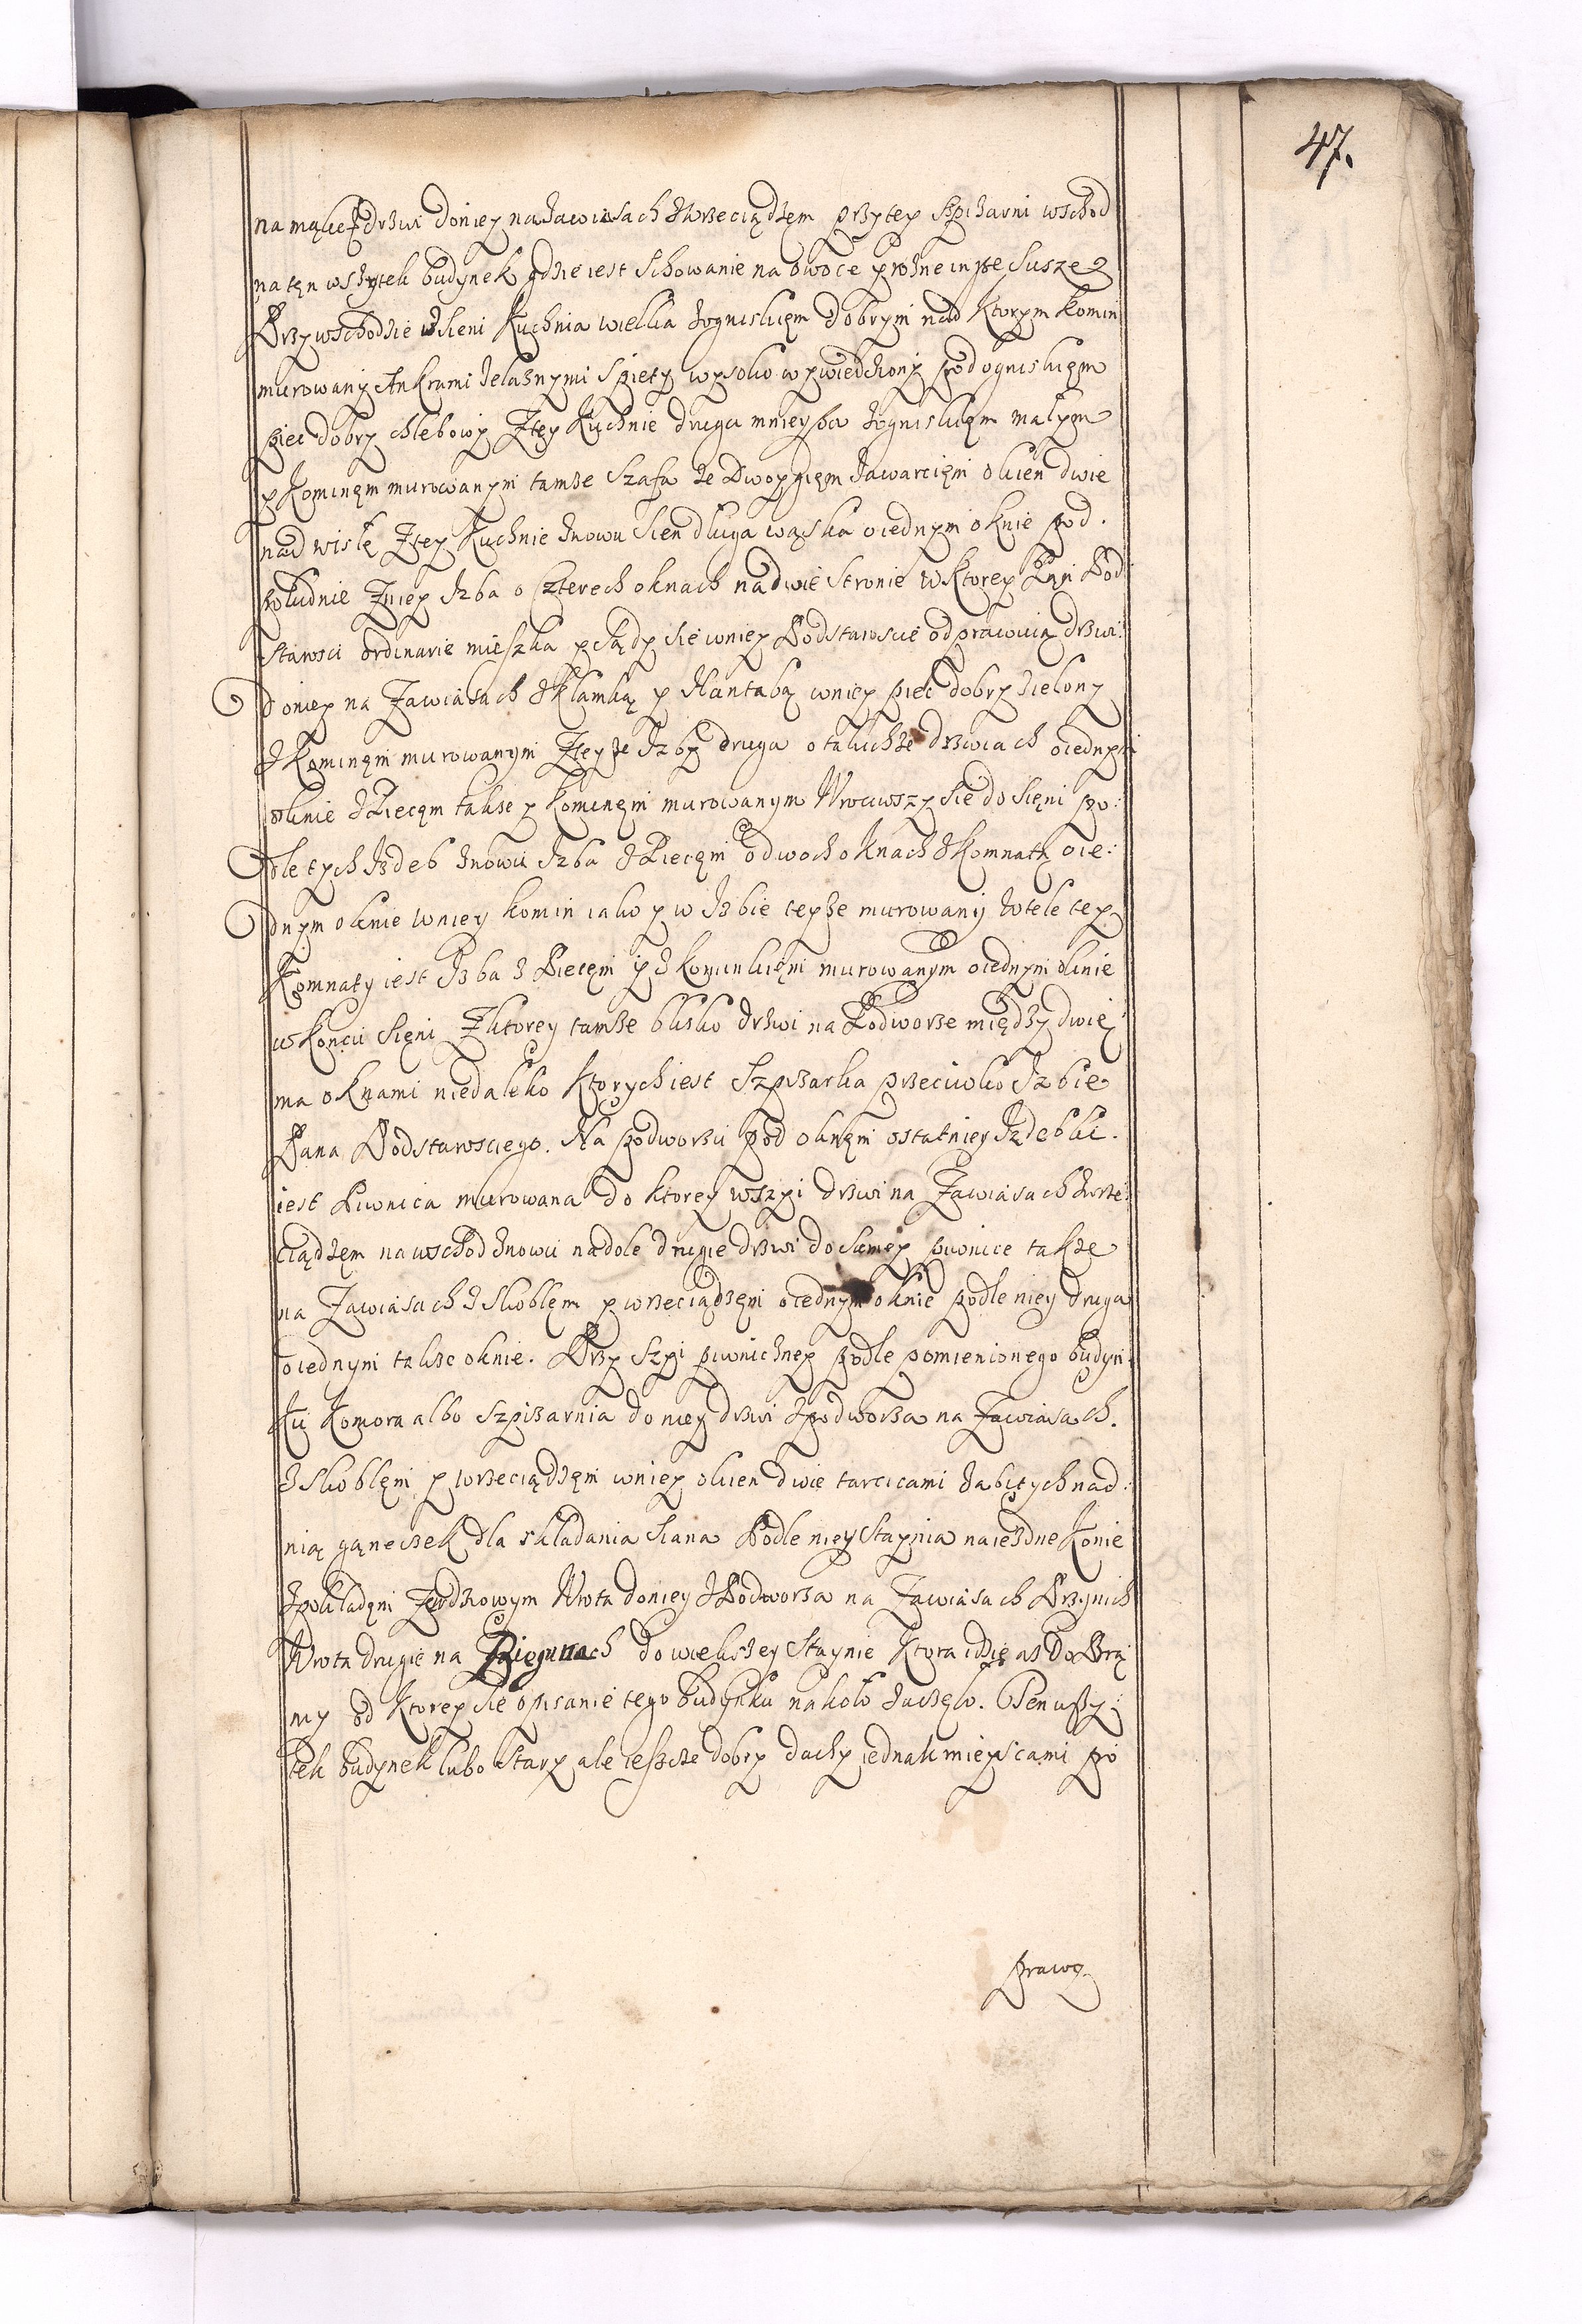 47.
na mąkę drzwi do niey na Zawiasach z wrzeciądzem przy tey szpiżarni wschod
na ten wszytek budynek gdzie iest schowanie na owoce prożne insze susze
Przy wschodzie w Sieni Kuchnia wielka z ogniskiem dobrym nad ktorym komin
murowany Ankrami żelaznymi spięty wysoko wywiedziony pod ogniskiem
piec dobry chlebowy Z tey Kuchnie druga mnieysza z ogniskiem małym
y Kominem murowanym tamże Szafa ze Dwoygiem Zawarcięm okien dwie
nad wisłę Z tey Kuchnie znowu Sień długa wąska o iednym oknie pod.
południe Z niey Izba o Czterech oknach na dwie stronie w Ktorey Pan Pod
starości ordinarie mieszka y sądy się w niey Podstaroscie odprawuią drzwi:
do niey na Zawiasach z Klamką y Hantabą w niey piec dobry zielony
z Kominem murowanym Z teyże Izby druga o takichże drzwiach o iednym
oknie z Piecem także y kominem murowanym Wrociwszy się do Sieni po:
dle tych Izdeb znowu Izba z Piecem o dwoch oknach z Komnatą o ie:
dnym oknie w niey komin iako y w Izbie teyże murowany w tele tey
Komnaty iest Izba z Piecem y z kominkiem murowanym o iednym oknie
w Końcu Sieni Z ktorey tamże blisko drzwi na Podworze między dwie
ma oknami niedaleko Ktorych iest Szpiżarka przeciwko Izbie
Pana Podstarosciego. Na podworzu pod oknem ostatniey Izdebki.
iest Piwnica murowana do ktorey w szyi drzwi na Zawiasach z wrze:
ciądzem na wschod znowu na dole drugie drzwi do samey piwnice także
na Zawiasach z skoblem y wrzeciądzem o iednym oknie podle niey druga
o iednym także oknie. Przy Szyi piwniczney podle pomienionego budyn:
ku Komora albo Szpiżarnia do niey drzwi z podworza na Zawiasach.
z skoblem y wrzeciądzem w niey okien dwie tarcicami zabitych nad:
nią ganeczek dla składania siana Podle niey Staynia na iezdne Konie
z pokładem Wrota do niey z Podworza na Zawiasach Przy nich
Wrota drugie na Biegunach do większey Staynie Ktora idzie aż Do Bra
my od Ktorey się opisanie tego Budynku na koło zaczęło. Ten wszy:
tek budynek lubo stary ale ieszcze dobry dachy iednak mieyscami po
prawy